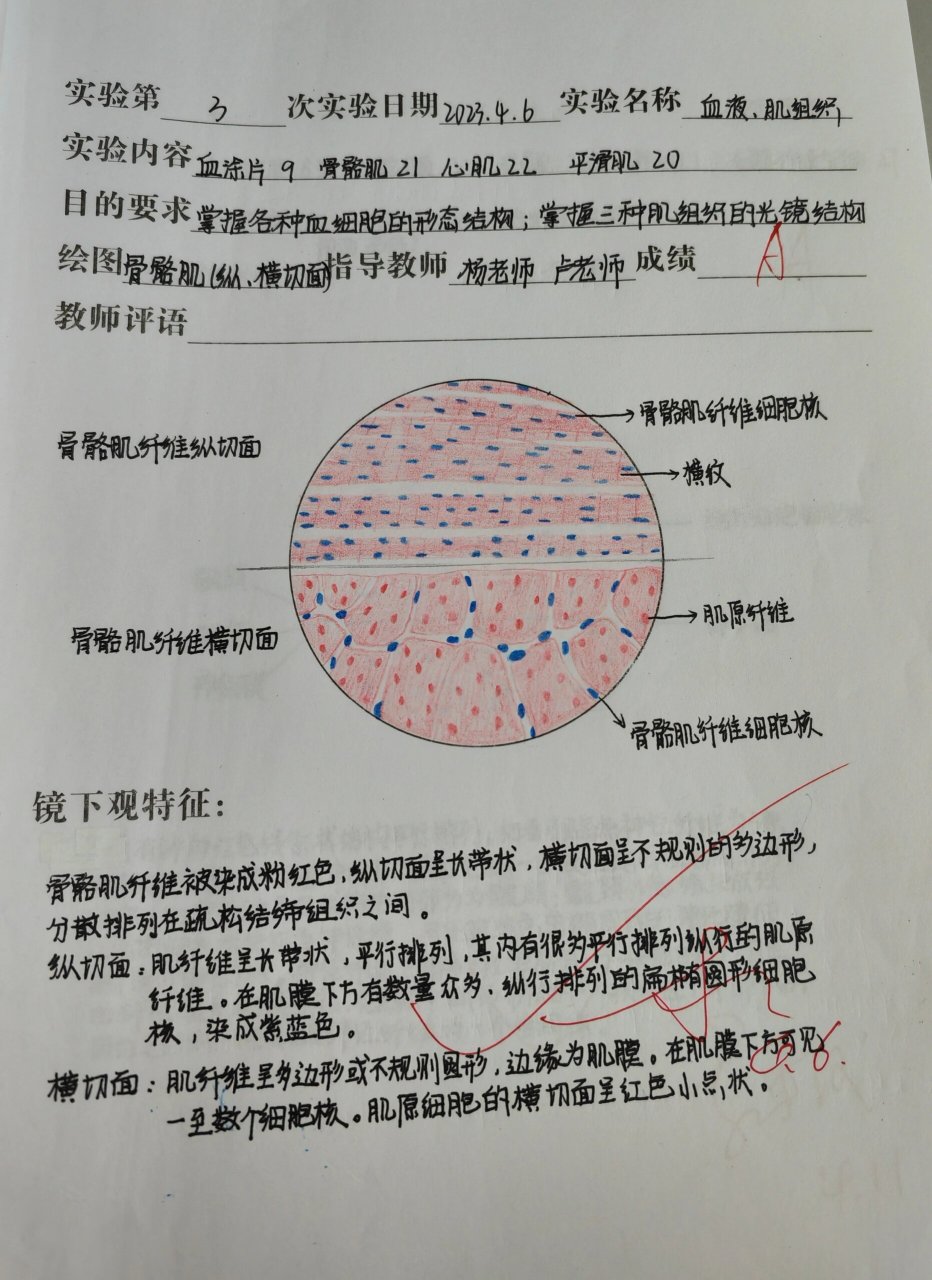 实验第 3 次实验日期 2023.4.6 实验名称 血液、肌组织
实验内容 血涂片 9 骨骼肌 21 心肌 22 平滑肌 20
目的要求 掌握各种血细胞的形态结构；掌握三种肌组织的光镜结构
绘图 骨骼肌(纵、横切面) 指导教师 杨老师 卢老师 成绩 A
教师评语
骨骼肌纤维细胞核
骨骼肌纤维纵切面
横纹
肌原纤维
骨骼肌纤维横切面
骨骼肌纤维细胞核
镜下观特征：
骨骼肌纤维被染成粉红色，纵切面呈长带状，横切面呈不规则的多边形，
分散排列在疏松结缔组织之间。
纵切面：肌纤维呈长带状，平行排列，其内有很多平行排列纵行的肌原
纤维。在肌膜下方有数量众多、纵行排列的扁椭圆形细胞
核，染成紫蓝色。
横切面：肌纤维呈多边形或不规则圆形，边缘为肌膜。在肌膜下方可见
一至数个细胞核。肌原细胞的横切面呈红色小点状。